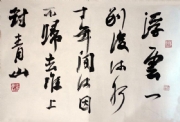 浮雲一
別後流水
十年間何因
不歸去淮上
對青山